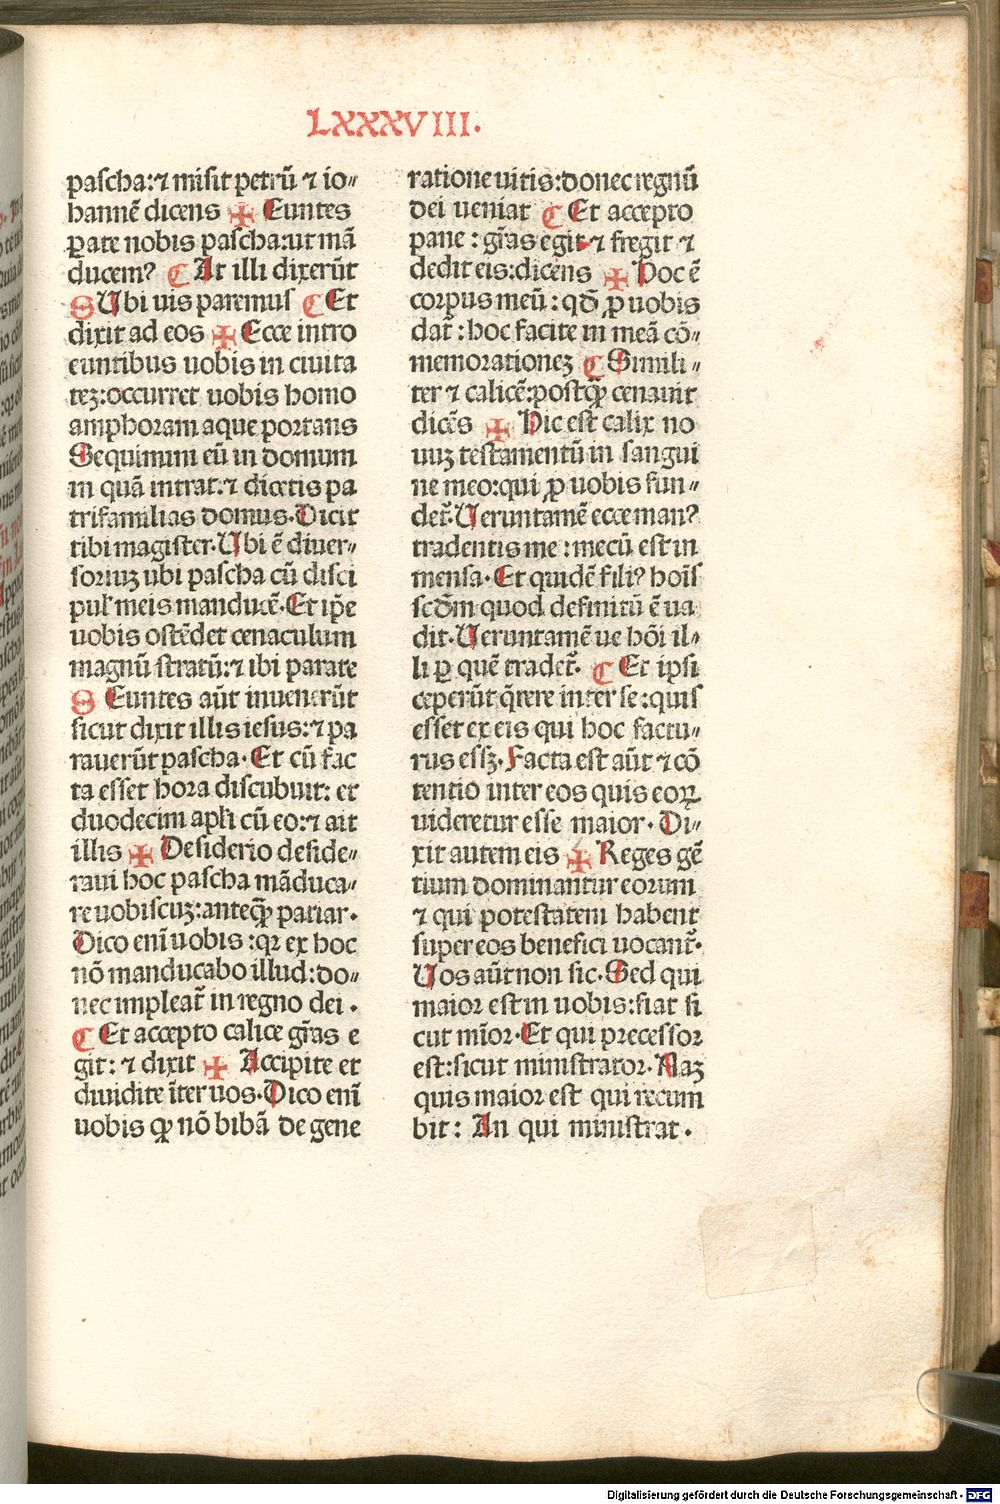 LXXXVIII.
pascha:⁊ misit petrū ⁊ io〃
hannē dicens ✠ Euntes
ꝑate nobis pascha:ut mā
ducem? C At illi dixerūt
S Ubi uis paremus C Et
dixit ad eos ✠ Ecce intro
euntibus uobis in ciuita
teꝫ:occurret uobis homo
amphoram aque portans
Sequimini eū in domum
in quā intrat:⁊ dicetis pa
trifamilias domus.Dicit
tibi magister.Ubi ē diuer〃
soriuꝫ ubi pascha cū disci
pul' meis manducē.Et ip̄e
uobis ostēdet cenaculum
magnū stratū:⁊ ibi parate
S Euntes aūt inuenerūt
sicut dixit illis iesus:⁊ pa
rauerūt pascha. Et cū fac
ta esset hora discubuit: et
duodecim apl̄i cū eo:⁊ ait
illis ✠ Desiderio deside〃
raui hoc pascha māduca〃
re uobiscuꝫ:anteꝙ̄ patiar.
Dico enī uobis :qꝛ ex hoc
nō manducabo illud:do〃
nec impleat᷑ in regno dei .
C Et accepto calice gr̄as e
git: ⁊ dixit ✠ Accipite et
diuidite īter uos.Dico enī
uobis ꝙ nō bibā de gene
ratione uitis:donec regnū
dei ueniat C Et accepto
pane : gr̄as egit ⁊ fregit ⁊
dedit eis:dicēns ✠ Hoc ē
corpus meū : qd̄ ꝓ uobis
dat᷑ : hoc facite in meā cō〃
memorationeꝫ C Simili〃
ter ⁊ calicē:postꝙ̄ cenauit
dicēs ✠ Hic est calix no
uuꝫ testamentū in sangui
ne meo:qui ꝓ uobis fun〃
det᷑.Ueruntamē ecce man?
tradentis me : mecū est in
mensa. Et quidē fili? hoīs
scd̄m quod definitū ē ua
dit.Ueruntamē ue hōi il〃
li ꝑ quē tradet᷑. C Et ipsi
ceperūt q̄rere inter se:quis
esset ex eis qui hoc factu〃
rus essꝫ.Facta est aūt ⁊ cō
tentio inter eos quis eoꝝ
uideretur esse maior. Di〃
xit autem eis ✠ Reges gē
tium dominantur eorum
⁊ qui potestatem habent
super eos benefici uocant᷑.
Uos aūt non sic.Sed qui
maior est in uobis:fiat si
cut mīor.Et qui precessor
est:sicut ministrator.Naꝫ
quis maior est qui recum
bit: An qui ministrat .
Digitalisierung gefördert durch die Deutsche Forschungsgemeinschaft - DFG